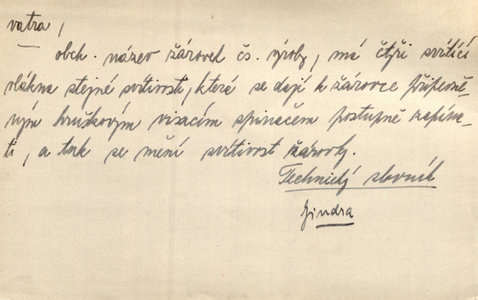 vatra,
obch. název žárovek čs. výroby, má čtyři svítící
vlákna stejné svítivosti, která se dají k žárovce připevně-
ným hruškovým visacím spínačem postupně zapína-
ti, a tak se mění svítivost žárovky.
Technický slovník
Jindra